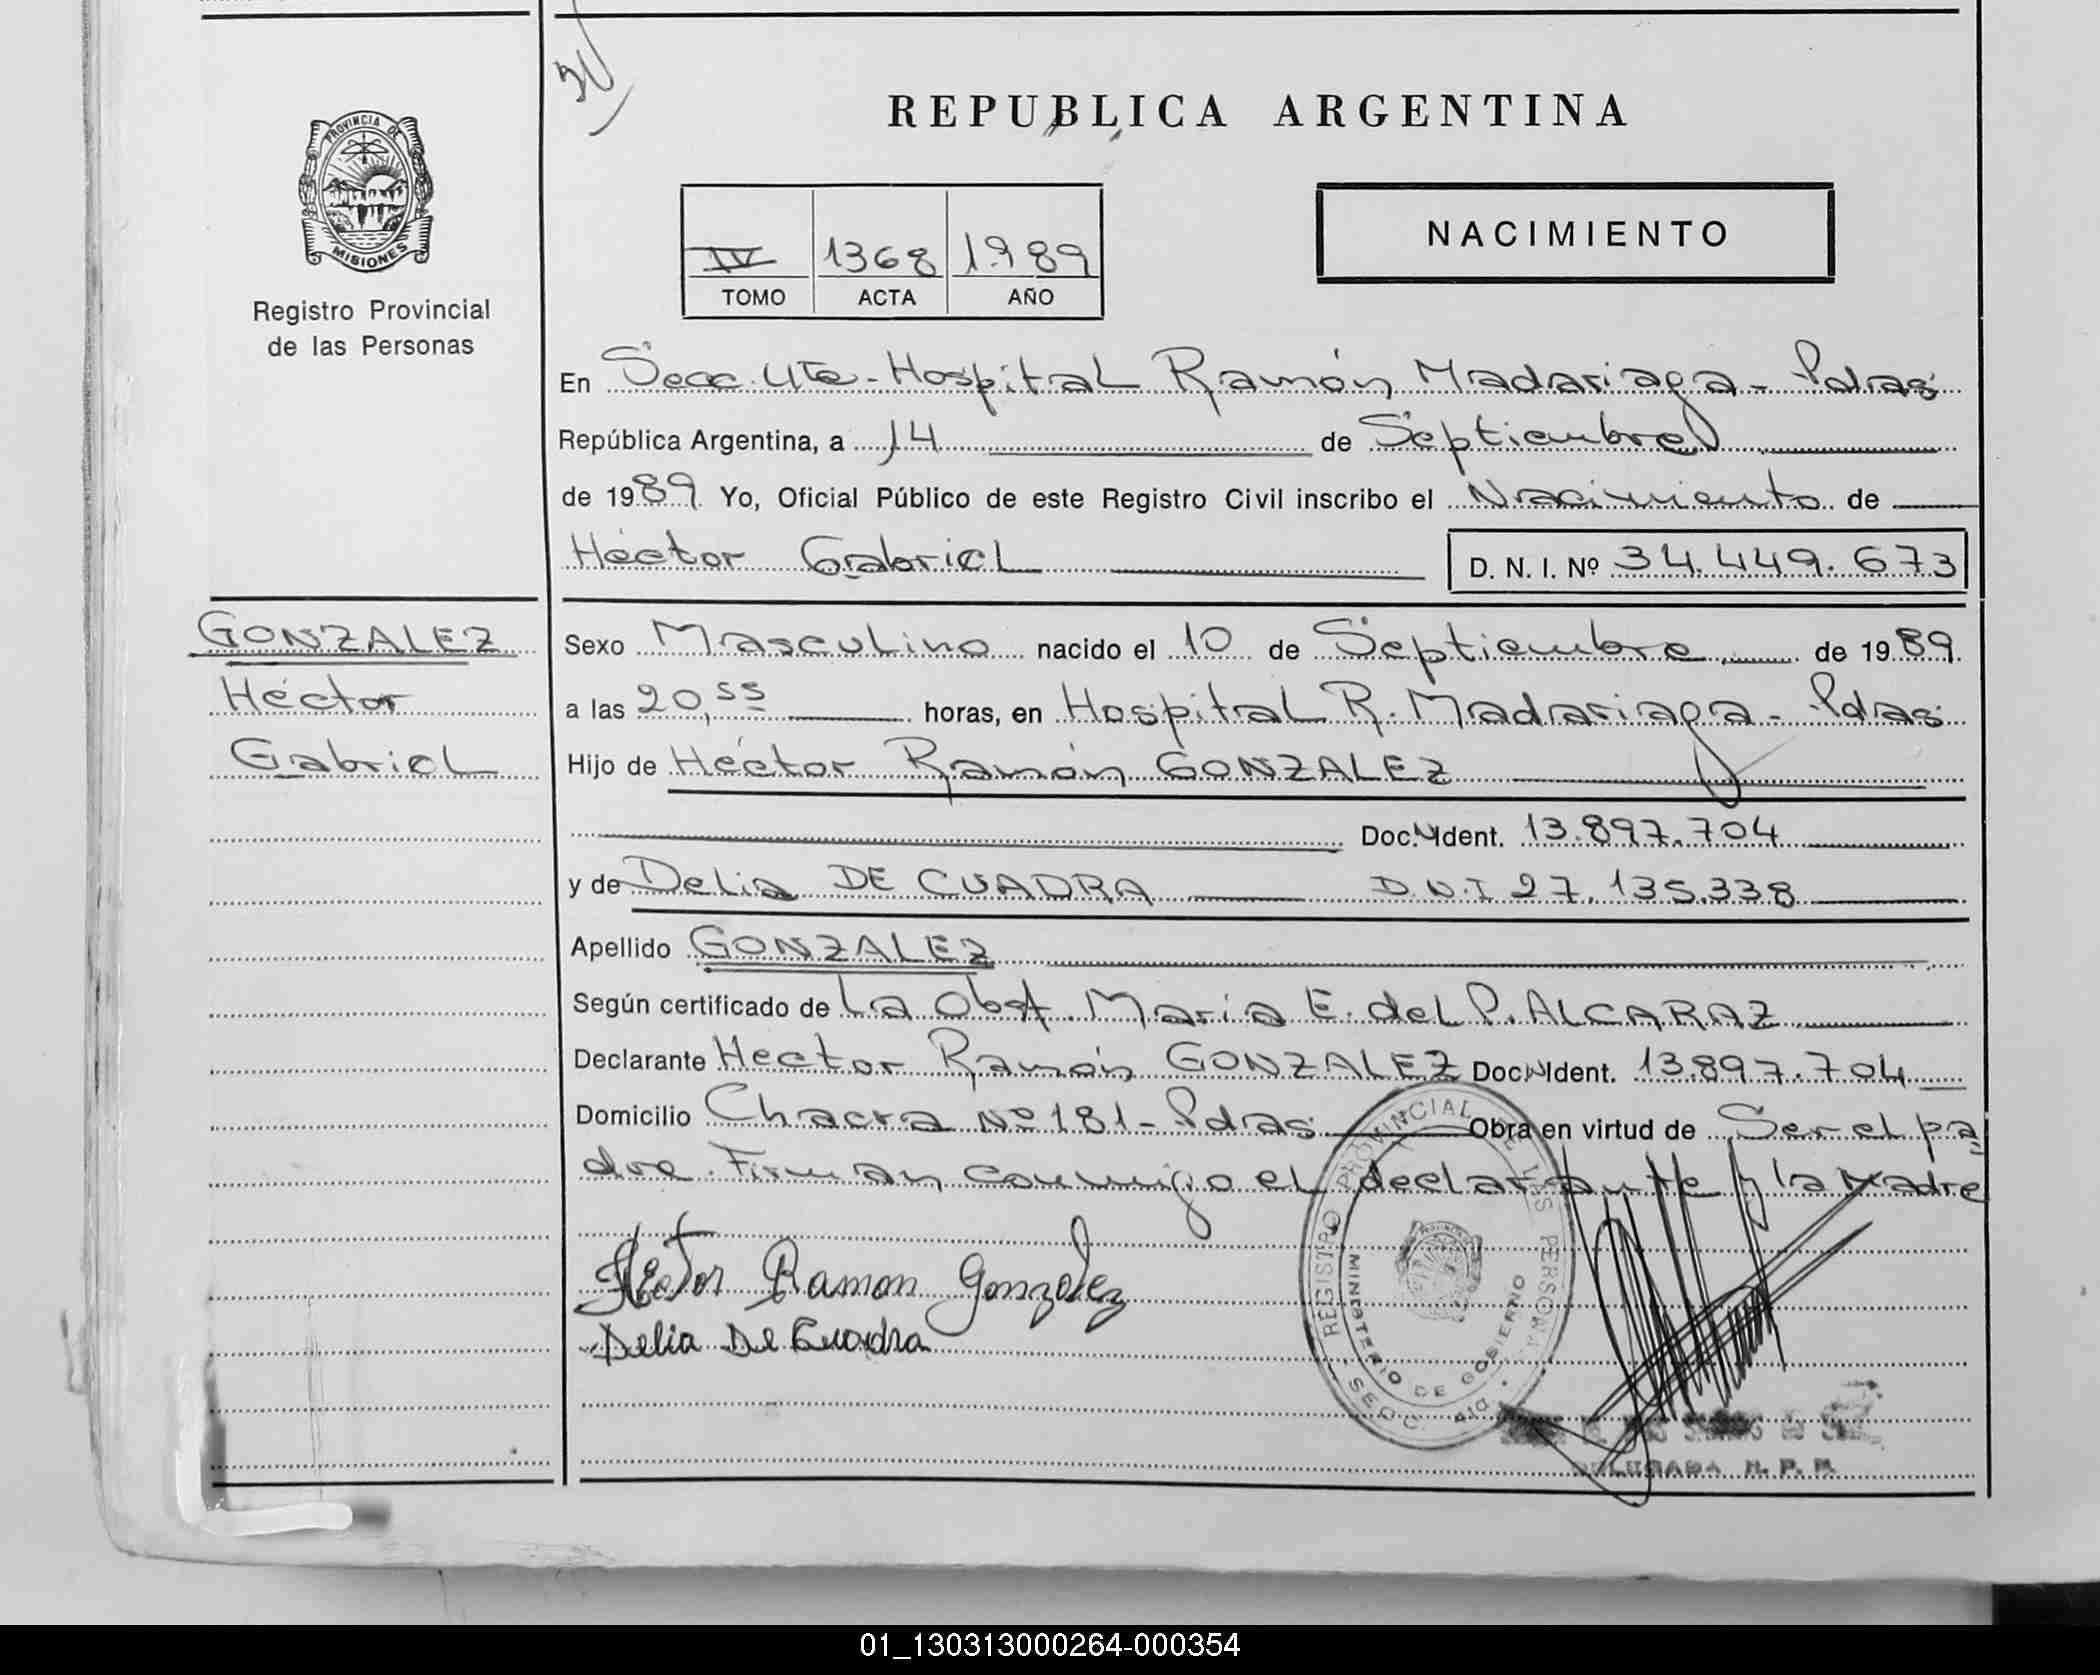 REPUBLICA ARGENTINA
PROVINCIA DE
MISIONES
Registro Provincial
de las Personas
IV 1368 1989
TOMO ACTA AÑO
NACIMIENTO
En Secc. 4ta - Hospital Ramón Madariaga - Pdas
República Argentina, a 14 de Septiembre
de 1989 Yo, Oficial Público de este Registro Civil inscribo el Nacimiento de
Héctor Gabriel D. N. I. Nº 34.449.673
GONZALEZ
Héctor
Gabriel
Sexo Masculino nacido el 10 de Septiembre de 1989
a las 20,55 horas, en Hospital R. Madariaga - Pdas
Hijo de Héctor Ramón GONZALEZ
Doc. N Ident. 13.897.704
y de Delia DE CUADRA D.N.I 27.135.338
Apellido GONZALEZ
Según certificado de La Obst. María E. del P. ALCARAZ
Declarante Hector Ramón GONZALEZ Doc. N Ident. 13.897.704
Domicilio Chacra Nº 181 - Pdas Obra en virtud de Ser el pa
dre. Firman conmigo el declarante y la Madre
Hector Ramon Gonzalez
Delia De Cuadra
REGISTRO PROVINCIAL DE LAS PERSONAS
MINISTERIO DE GOBIERNO
SECC. 4ta
DELEGADA R. P. P.
01_130313000264-000354